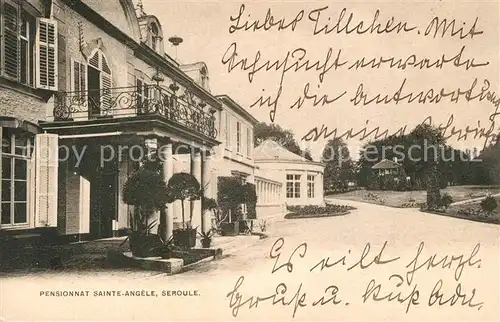 Liebes Tillchen. Mit
Sehnsucht erwarte
ich die Antwort auf
meinen Brief.
Es eilt sehr.
Gruß u. Kuß
PENSIONNAT SAINTE-ANGÈLE, SEROULE.